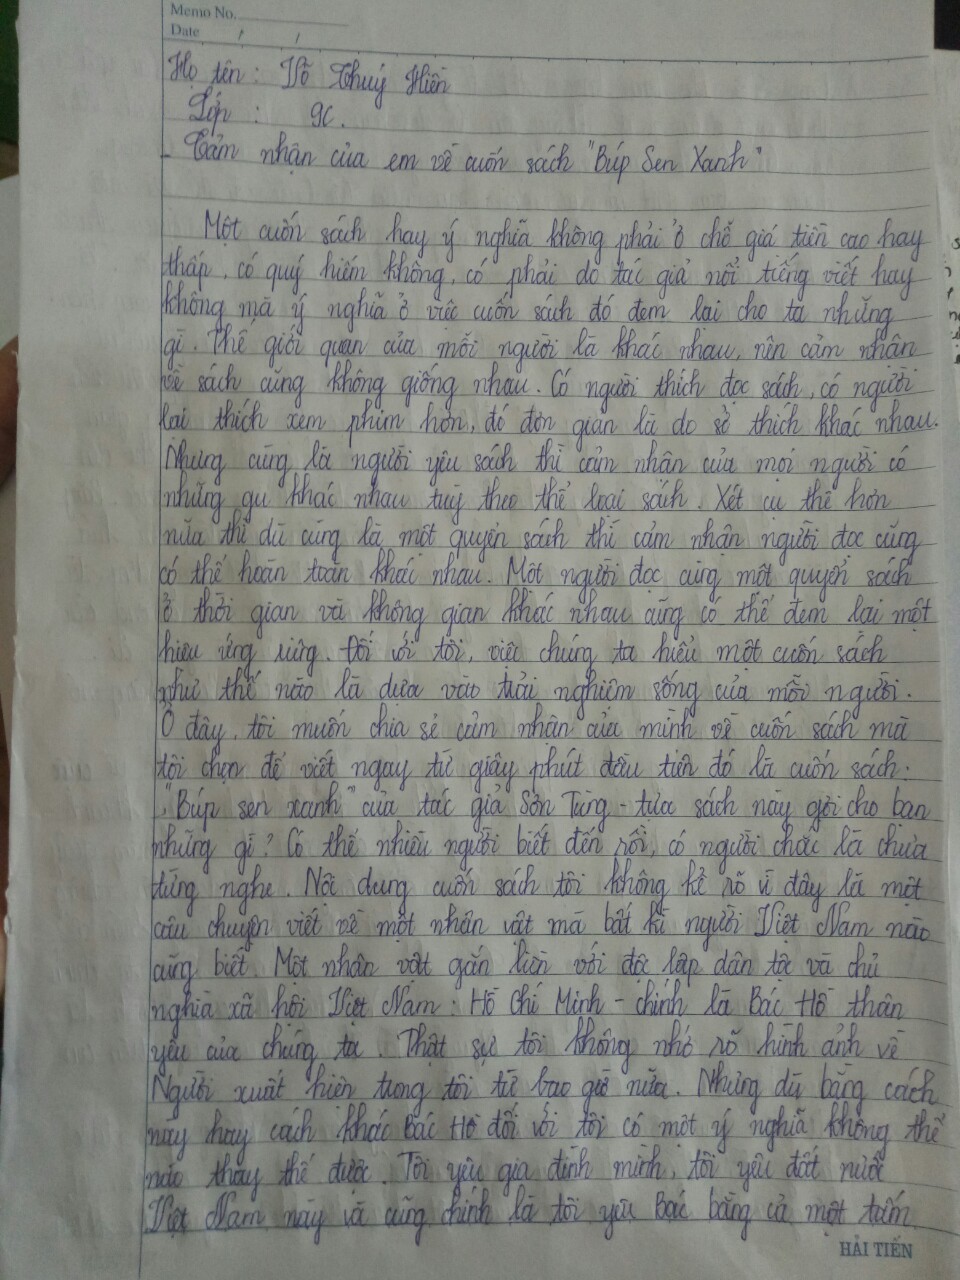 Memo No.
Date / /
Họ tên : Võ Thuý Hiền
Lớp : 9C.
- Cảm nhận của em về cuốn sách "Búp Sen Xanh"
Một cuốn sách hay ý nghĩa không phải ở chỗ giá tiền cao hay
thấp, có quý hiếm không, có phải do tác giả nổi tiếng viết hay
không mà ý nghĩa ở việc cuốn sách đó đem lại cho ta những
gì. Thế giới quan của mỗi người là khác nhau, nên cảm nhận
về sách cũng không giống nhau. Có người thích đọc sách, có người
lại thích xem phim hơn, đó đơn giản là do sở thích khác nhau.
Nhưng cùng là người yêu sách thì cảm nhận của mọi người có
những gu khác nhau tuỳ theo thể loại sách. Xét cụ thể hơn
nữa thì dù cùng là một quyển sách thì cảm nhận người đọc cũng
có thể hoàn toàn khác nhau. Một người đọc cùng một quyển sách
ở thời gian và không gian khác nhau cũng có thể đem lại một
hiệu ứng riêng. Đối với tôi, việc chúng ta hiểu một cuốn sách
như thế nào là dựa vào trải nghiệm sống của mỗi người.
Ở đây, tôi muốn chia sẻ cảm nhận của mình về cuốn sách mà
tôi chọn để viết ngay từ giây phút đầu tiên đó là cuốn sách:
"Búp sen xanh" của tác giả Sơn Tùng - tựa sách này gợi cho bạn
những gì? Có thể nhiều người biết đến rồi, có người chắc là chưa
từng nghe. Nội dung cuốn sách tôi không kể rõ vì đây là một
câu chuyện viết về một nhân vật mà bất kì người Việt Nam nào
cũng biết. Một nhân vật gắn liền với độc lập dân tộc và chủ
nghĩa xã hội Việt Nam: Hồ Chí Minh - chính là Bác Hồ thân
yêu của chúng ta. Thật sự tôi không nhớ rõ hình ảnh về
Người xuất hiện trong tôi từ bao giờ nữa. Nhưng dù bằng cách
này hay cách khác Bác Hồ đối với tôi có một ý nghĩa không thể
nào thay thế được. Tôi yêu gia đình mình, tôi yêu đất nước
Việt Nam này và cũng chính là tôi yêu Bác bằng cả một tấm
HẢI TIẾN